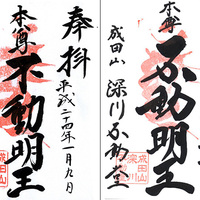 奉拝
平成二十四年一月九日
本尊
不動明王
成田山
本尊
不動明王
成田山
深川不動堂
成田山
深川